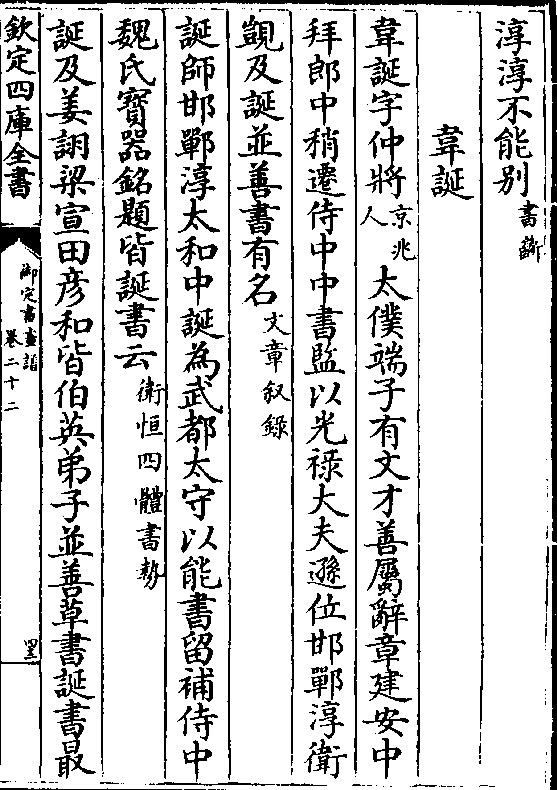 淳淳不能别書斷
韋誕
韋誕字仲將京兆人太僕端子有文才善屬辭章建安中
拜郎中稍遷侍中中書監以光禄大夫遜位邯鄲淳衛
覬及誕並善書有名文章叙錄
誕師邯鄲淳太和中誕為武都太守以能書留補侍中
魏氏寶器銘題皆誕書云衛恒四體書勢
誕及姜詡梁宣田彦和皆伯英弟子並善草書誕書最
欽定四庫全書
御定書畫譜
卷二十二